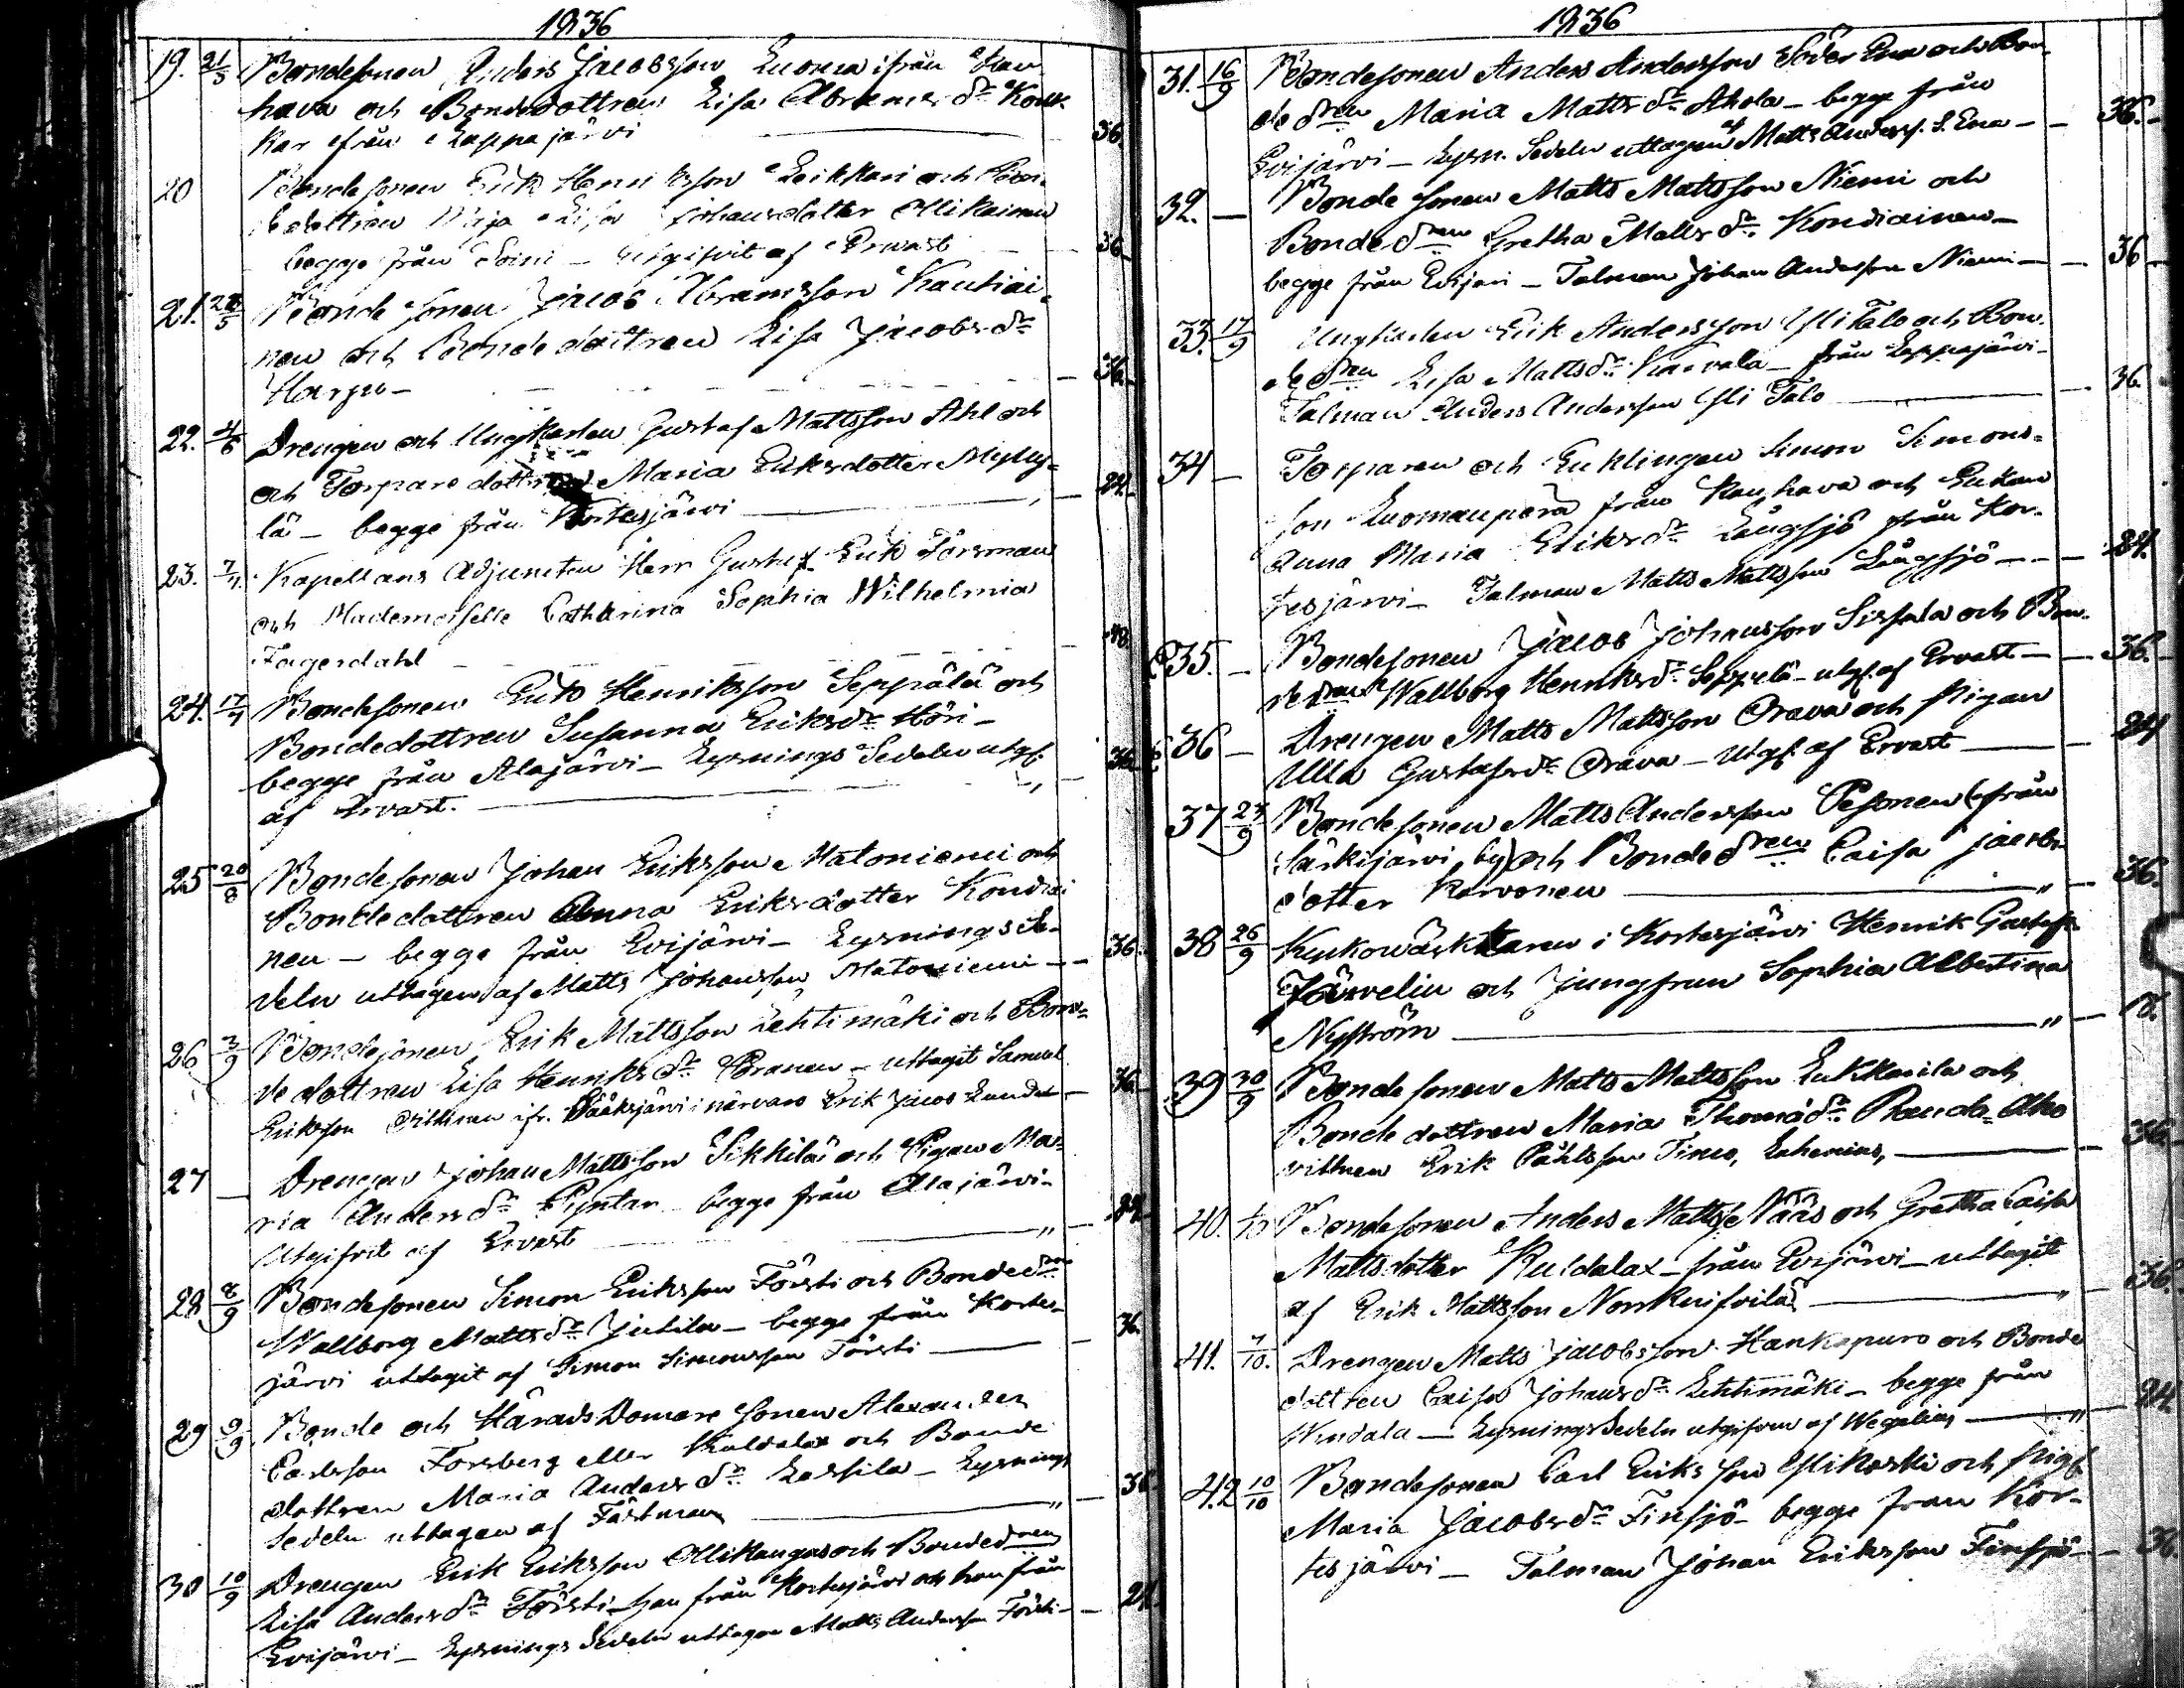 1836
19. 21/5 Bondesonen Anders Jacobsson Luoma ifrån Kau
hava och Bondedottren Lisa Abrams dr Konk
kar från Lappajärvi 36.
20 Bondesonen Erik Henriksson Leikkari och Bon
dedottren Maja Lisa Johansdotter Ollikainen
begge från Soini – utgifvit af Ervast 36
21. 28/5 Bonde sonen Jacob Abramsson Kautiai-
nen och Bonde dottren Lisa Jacobs dr
Harju – 36.
22. 4/6 Drengen och Ungkarlen Gustaf Mattsson Ahl och
och Torpare dottren Maria Eriksdotter Mylly-
lä – begge från Kortesjärvi 24.
23. 7/7. Kapellans Adjuncten Herr Gustaf Erik Forsman
och Mademoiselle Catharina Sophia Wilhelmia
Fagerdahl 48.
24. 17/7 Bondesonen Erik Henriksson Seppälä och
Bondedottren Susanna Eriks dr Höri –
begge från Alajärvi – Lysnings Sedeln utgf.
af Ervast. 36
25 20/8 Bondesonen Johan Eriksson Matoniemi och
Bondedottren Anna Eriksdotter Kondiai
nen – begge från Evijärvi – Lysnings Se-
deln uttagen af Matts Johansson Matoniemi – 36.
26 3/9 Bondesonen Erik Mattsson Lehtimäki och Bon-
de dottren Lisa Henriks dr Oranen – uttagit Samuel
Eriksson ifr. Pääksjärvi i närvaro Erik Jacob 36
27 – Drengen Johan Mattsson Sikkilä och Pigan Ma-
ria Anders dr Pyntar – begge från Alajärvi –
Utgifvit af Ervast " – 24
28 8/9 Bondesonen Simon Eriksson Försti och Bonde dren
Wallborg Matts dr Jutila – begge från Kortes-
järvi uttagit af Simon Simonsson Försti 36.
29 9/9 Bonde och Härads Domare Sonen Alexander
Carlsson Forsberg eller Kuldalax och Bonde
dottren Maria Anders dr Lassila – Lysnings
Sedeln uttagen af Fästman " – 36.
30 10/9 Drengen Erik Eriksson Ollikangas och Bonde dren
Lisa Anders dr Försti – han från Kortesjärvi och hon från
Evijärvi – Lysnings Sedeln uttagen Matts Andersson Försti – 24.
1836
31. 16/9 Bondesonen Anders Andersson Söder Ena och Bon-
de dren Maria Matts dr Ahola – begge från
Evijärvi – Lysn. Sedeln uttagen af Matts Anderss. S. Ena – 36.
32. – Bonde sonen Matts Mattsson Niemi och
Bonde dren Gretha Matts dr Kondiainen –
begge från Evijervi – Talman Johan Andersson Niemi – 36
33. 17/9 Ungkarlen Erik Andersson Yli Talo och Bon-
de dren Lisa Matts dr Karvala – från Lappajärvi –
Talman Anders Andersson Yli Talo 36.
34 – Torparen och Enklingen Simon Simons-
son Luomanperä från Kauhava och Enkan
Anna Maria Eriks dr Långsjö från Kor-
tesjärvi – Talman Matts Mattsson Långsjö – 24.
35. – Bondesonen Jacob Johansson Sissala och Bon-
de dren Wallborg Henriks dr Seppälä – utgf. af Ervast – 36.
36 – Drengen Matts Mattsson Orava och Pigan
Ulla Gustafs dr Orava – utgf. af Ervast 24
37 23/9 Bondesonen Matts Andersson Pesonen (från
Särkijärvi by) och Bonde dren Caisa Jacobs
dotter Karvonen " – 36.
38 26/9 Kyrkowäcktaren i Kortesjärvi Henrik Gustafs
Järvelin och Jungfrun Sophia Albertina
Nyström " – 18.
39 30/9 Bondesonen Matts Mattsson Lukkarila och
Bonde dottren Maria Thomä dr Randa-Aho
vittnen Erik Påhlsson Timo, 36.
40. /10 Bondesonen Anders Mattss. Näås och Gretha Caisa
Mattsdotter Kuldalax – från Evijärvi – uttagit
af Erik Mattsson Norrknifvilä " 36.
41. 7/10. Drengen Matts Jacobsson Hankapuro och Bonde
dottren Caisa Johans dr Lehtimäki – begge från
Windala – Lysnings Sedeln utgifven af Wegelius " 24
42 10/10 Bondesonen Carl Eriksson Ylikoski och Pig.
Maria Jacobs dr Finsjö – begge från Kor-
tesjärvi – Talman Johan Eriksson Finsjö – 36.